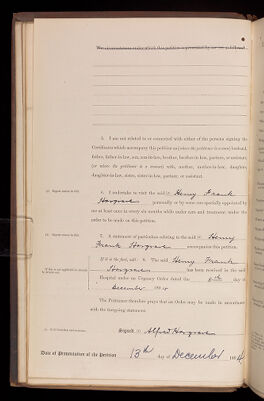 5. I am not related to or connected with either of the persons signing the
Certificates which accompany this petition as (where the petitioner is a man) husband,
father, father-in-law, son, son-in-law, brother, brother-in-law, partner, or assistant,
(or where the petitioner is a woman) wife, mother, mother-in-law, daughter,
daughter-in-law, sister, sister-in-law, partner, or assistant.
6. I undertake to visit the said Henry Frank
Hargrave personally or by some one specially appointed by
me at least once in every six months while under care and treatment under the
order to be made on this petition.
7. A statement of particulars relating to the said Henry
Frank Hargrave accompanies this petition.
If it is the fact, add: 8. The said Henry Frank
Hargrave has been received in the said
Hospital under an Urgency Order dated the day of
December
The Petitioner therefore prays that an Order may be made in accordance
with the foregoing statement.
Signed Alfred Hargrave
Date of Presentation of the Petition 13th day of December